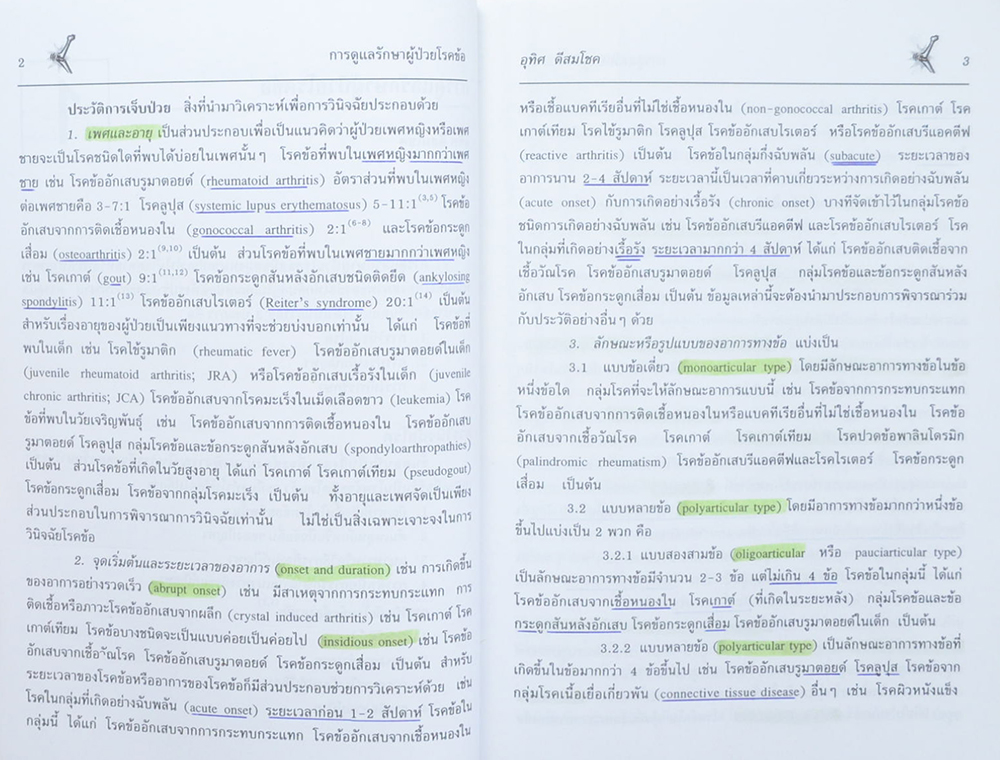 2
การดูแลรักษาผู้ป่วยโรคข้อ
ประวัติการเจ็บป่วย สิ่งที่นำมาวิเคราะห์เพื่อการวินิจฉัยประกอบด้วย
1. เพศและอายุ เป็นส่วนประกอบเพื่อเป็นแนวคิดว่าผู้ป่วยเพศหญิงหรือเพศ
ชายจะเป็นโรคชนิดใดที่พบได้บ่อยในเพศนั้นๆ โรคข้อที่พบในเพศหญิงมากกว่าเพศ
ชาย เช่น โรคข้ออักเสบรูมาตอยด์ (rheumatoid arthritis) อัตราส่วนที่พบในเพศหญิง
ต่อเพศชายคือ 3-7:1 โรคลูปุส (systemic lupus erythematosus) 5-11:1(3,5) โรคข้อ
อักเสบจากการติดเชื้อหนองใน (gonococcal arthritis) 2:1(6-8) และโรคข้อกระดูก
เสื่อม (osteoarthritis) 2:1(9,10) เป็นต้น ส่วนโรคข้อที่พบในเพศชายมากกว่าเพศหญิง
เช่น โรคเกาต์ (gout) 9:1(11,12) โรคข้อกระดูกสันหลังอักเสบชนิดติดยึด (ankylosing
spondylitis) 11:1(13) โรคข้ออักเสบไรเตอร์ (Reiter's syndrome) 20:1(14) เป็นต้น
สำหรับเรื่องอายุของผู้ป่วยเป็นเพียงแนวทางที่จะช่วยบ่งบอกเท่านั้น ได้แก่ โรคข้อที่
พบในเด็ก เช่น โรคไข้รูมาติก (rheumatic fever) โรคข้ออักเสบรูมาตอยด์ในเด็ก
(juvenile rheumatoid arthritis; JRA) หรือโรคข้ออักเสบเรื้อรังในเด็ก (juvenile
chronic arthritis; JCA) โรคข้ออักเสบจากโรคมะเร็งในเม็ดเลือดขาว (leukemia) โรค
ข้อที่พบในวัยเจริญพันธุ์ เช่น โรคข้ออักเสบจากการติดเชื้อหนองใน โรคข้ออักเสบ
รูมาตอยด์ โรคลูปุส กลุ่มโรคข้อและข้อกระดูกสันหลังอักเสบ (spondyloarthropathies)
เป็นต้น ส่วนโรคข้อที่เกิดในวัยสูงอายุ ได้แก่ โรคเกาต์ โรคเกาต์เทียม (pseudogout)
โรคข้อกระดูกเสื่อม โรคข้อจากกลุ่มโรคมะเร็ง เป็นต้น ทั้งอายุและเพศจัดเป็นเพียง
ส่วนประกอบในการพิจารณาการวินิจฉัยเท่านั้น ไม่ใช่เป็นสิ่งเฉพาะเจาะจงในการ
วินิจฉัยโรคข้อ
2. จุดเริ่มต้นและระยะเวลาของอาการ (onset and duration) เช่น การเกิดขึ้น
ของอาการอย่างรวดเร็ว (abrupt onset) เช่น มีสาเหตุจากการกระทบกระแทก การ
ติดเชื้อหรือภาวะโรคข้ออักเสบจากผลึก (crystal induced arthritis) เช่น โรคเกาต์ โรค
เกาต์เทียม โรคข้อบางชนิดจะเป็นแบบค่อยเป็นค่อยไป (insidious onset) เช่น โรคข้อ
อักเสบจากเชื้อวัณโรค โรคข้ออักเสบรูมาตอยด์ โรคข้อกระดูกเสื่อม เป็นต้น สำหรับ
ระยะเวลาของโรคข้อหรืออาการของโรคข้อก็มีส่วนประกอบช่วยการวิเคราะห์ด้วย เช่น
โรคในกลุ่มที่เกิดอย่างฉับพลัน (acute onset) ระยะเวลาก่อน 1-2 สัปดาห์ โรคข้อใน
กลุ่มนี้ ได้แก่ โรคข้ออักเสบจากการกระทบกระแทก โรคข้ออักเสบจากเชื้อหนองใน
อุทิศ ดีสมโชค
3
หรือเชื้อแบคทีเรียอื่นที่ไม่ใช่เชื้อหนองใน (non-gonococcal arthritis) โรคเกาต์ โรค
เกาต์เทียม โรคไข้รูมาติก โรคลูปุส โรคข้ออักเสบไรเตอร์ หรือโรคข้ออักเสบรีแอคตีฟ
(reactive arthritis) เป็นต้น โรคข้อในกลุ่มกึ่งฉับพลัน (subacute) ระยะเวลาของ
อาการนาน 2-4 สัปดาห์ ระยะเวลานี้เป็นเวลาที่คาบเกี่ยวระหว่างการเกิดอย่างฉับพลัน
(acute onset) กับการเกิดอย่างเรื้อรัง (chronic onset) บางทีจัดเข้าไว้ในกลุ่มโรคข้อ
ชนิดการเกิดอย่างฉับพลัน เช่น โรคข้ออักเสบรีแอคตีฟ และโรคข้ออักเสบไรเตอร์ โรค
ในกลุ่มที่เกิดอย่างเรื้อรัง ระยะเวลามากกว่า 4 สัปดาห์ ได้แก่ โรคข้ออักเสบติดเชื้อจาก
เชื้อวัณโรค โรคข้ออักเสบรูมาตอยด์ โรคลูปุส กลุ่มโรคข้อและข้อกระดูกสันหลัง
อักเสบ โรคข้อกระดูกเสื่อม เป็นต้น ข้อมูลเหล่านี้จะต้องนำมาประกอบการพิจารณาร่วม
กับประวัติอย่างอื่นๆ ด้วย
3. ลักษณะหรือรูปแบบของอาการทางข้อ แบ่งเป็น
3.1 แบบข้อเดี่ยว (monoarticular type) โดยมีลักษณะอาการทางข้อในข้อ
หนึ่งข้อใด กลุ่มโรคที่จะให้ลักษณะอาการแบบนี้ เช่น โรคข้อจากการกระทบกระแทก
โรคข้ออักเสบจากการติดเชื้อหนองในหรือแบคทีเรียอื่นที่ไม่ใช่เชื้อหนองใน โรคข้อ
อักเสบจากเชื้อวัณโรค โรคเกาต์ โรคเกาต์เทียม โรคปวดข้อพาลินโดรมิก
(palindromic rheumatism) โรคข้ออักเสบรีแอคตีฟและโรคไรเตอร์ โรคข้อกระดูก
เสื่อม เป็นต้น
3.2 แบบหลายข้อ (polyarticular type) โดยมีอาการทางข้อมากกว่าหนึ่งข้อ
ขึ้นไปแบ่งเป็น 2 พวก คือ
3.2.1 แบบสองสามข้อ (oligoarticular หรือ pauciarticular type)
เป็นลักษณะอาการทางข้อมีจำนวน 2-3 ข้อ แต่ไม่เกิน 4 ข้อ โรคข้อในกลุ่มนี้ ได้แก่
โรคข้ออักเสบจากเชื้อหนองใน โรคเกาต์ (ที่เกิดในระยะหลัง) กลุ่มโรคข้อและข้อ
กระดูกสันหลังอักเสบ โรคข้อกระดูกเสื่อม โรคข้ออักเสบรูมาตอยด์ในเด็ก เป็นต้น
3.2.2 แบบหลายข้อ (polyarticular type) เป็นลักษณะอาการทางข้อที่
เกิดขึ้นในข้อมากกว่า 4 ข้อขึ้นไป เช่น โรคข้ออักเสบรูมาตอยด์ โรคลูปุส โรคข้อจาก
กลุ่มโรคเนื้อเยื่อเกี่ยวพัน (connective tissue disease) อื่นๆ เช่น โรคผิวหนังแข็ง